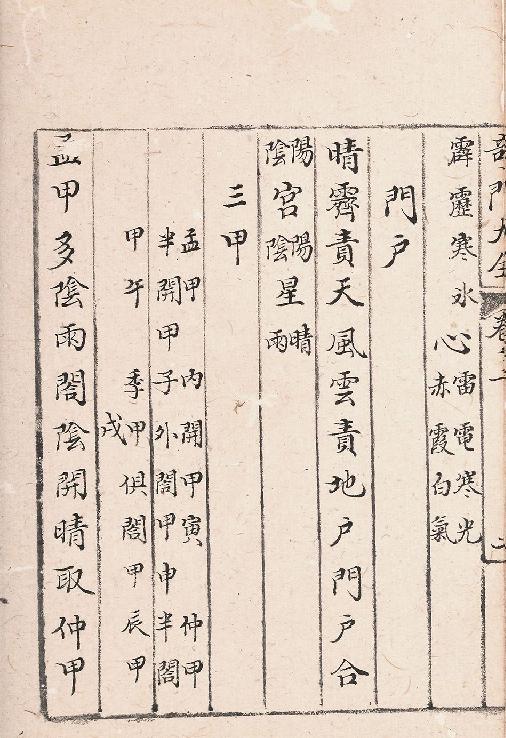 奇門大全 卷
霹靂寒氷心雷電寒光
赤霞白氣
門戶
晴霽責天風雲責地戶門戶合
陽陰宮陽陰星晴雨
三甲
孟甲 內開甲寅 仲甲
半開甲子外閤甲申半閤
甲午 季甲俱閤甲辰甲
戌
孟甲多陰雨閤陰開晴取仲甲